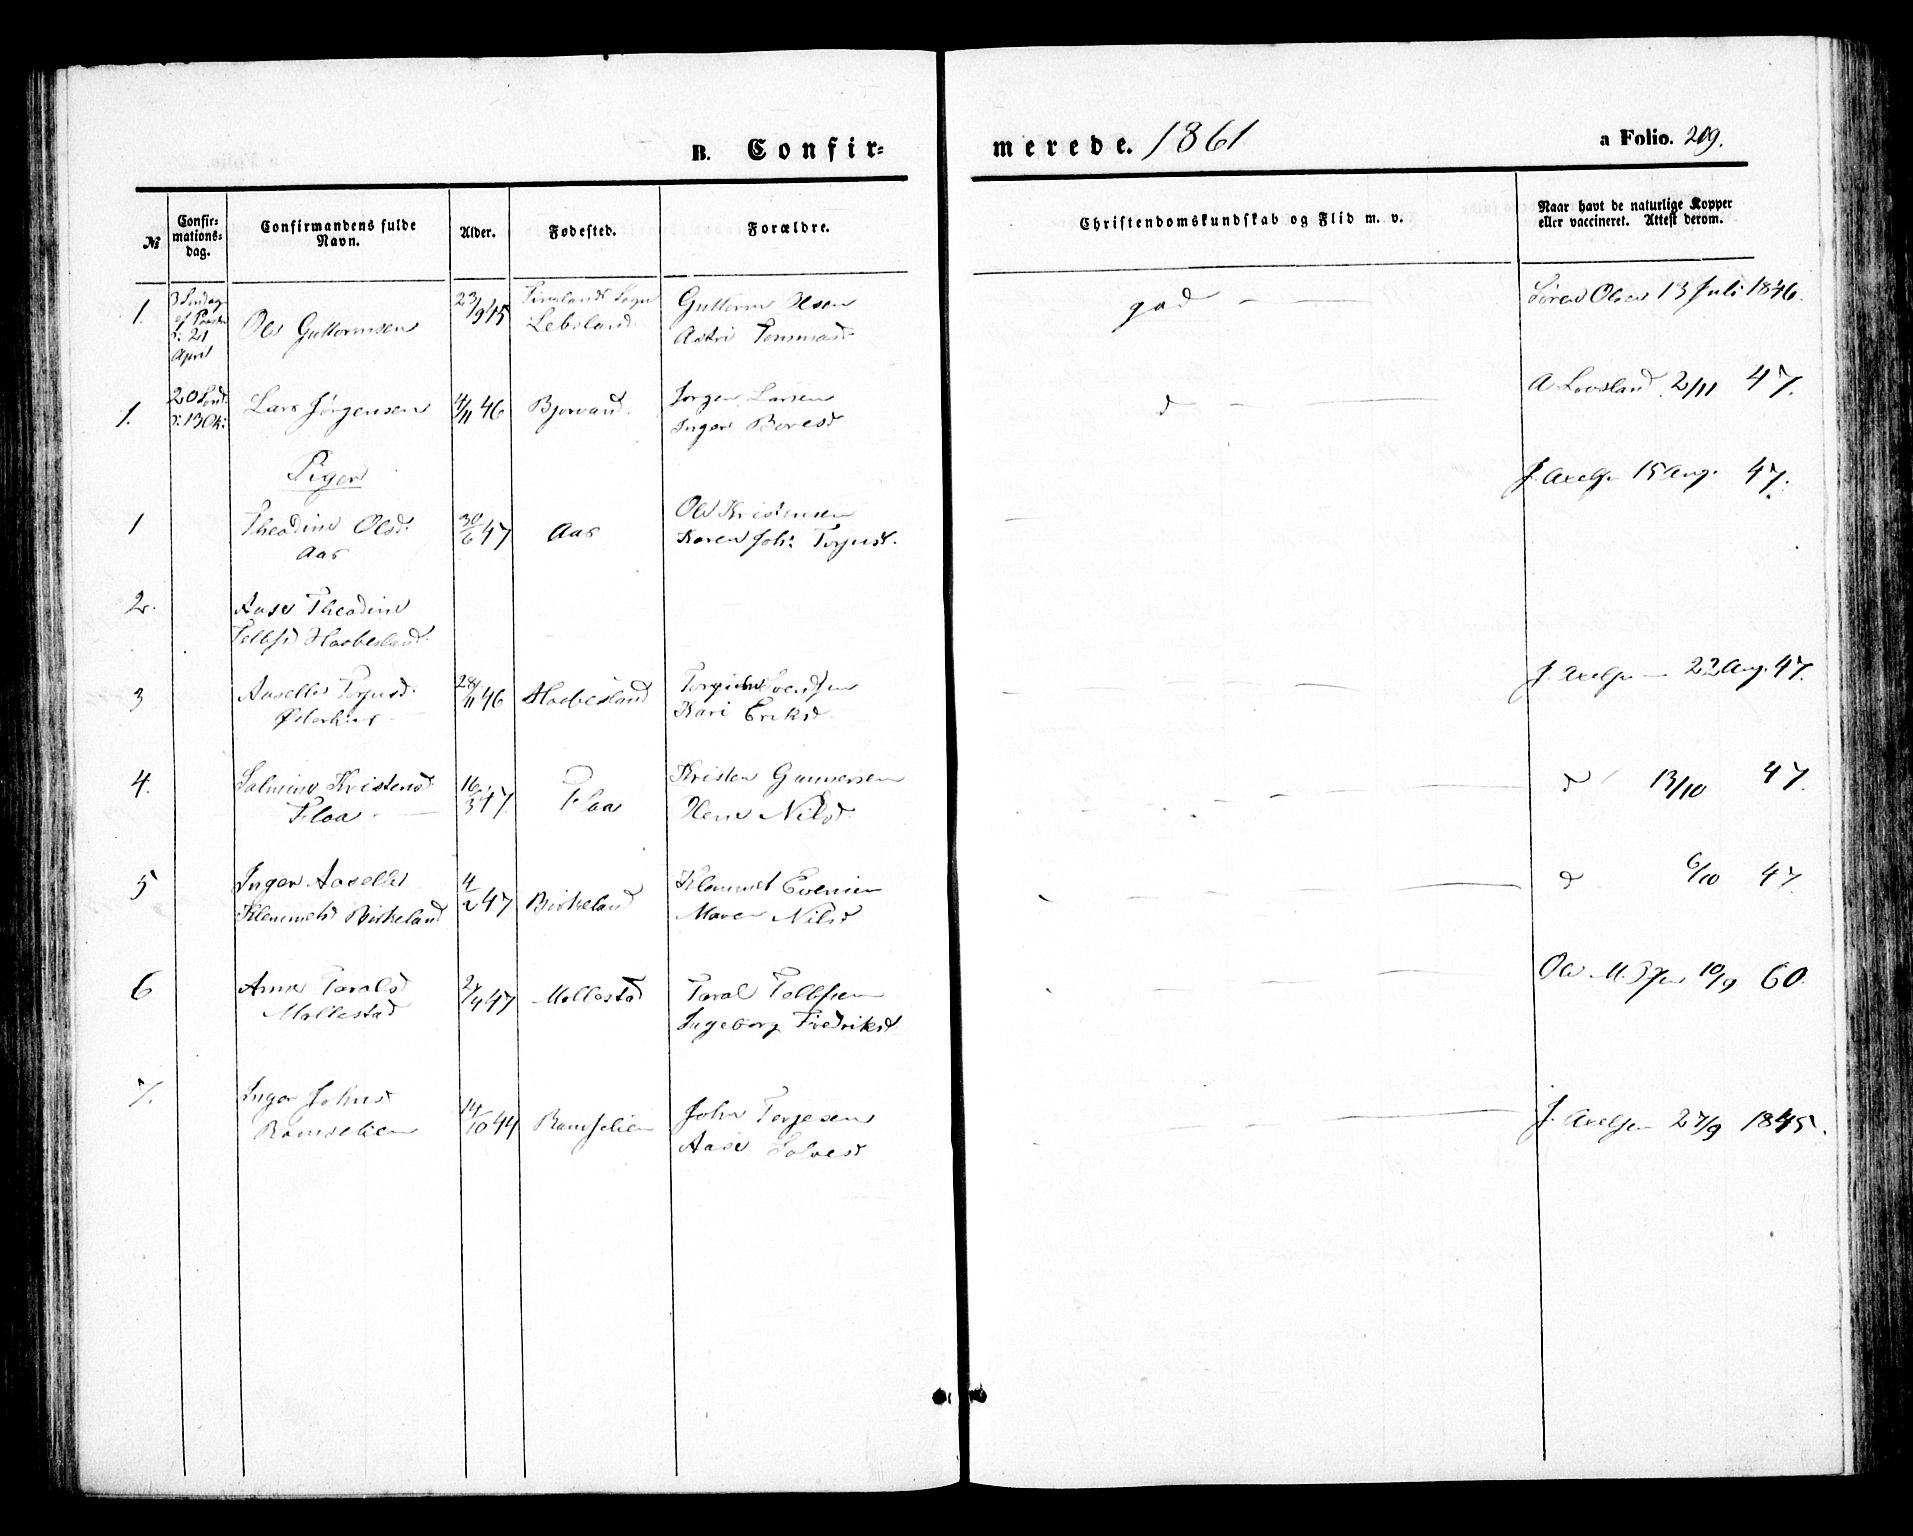 B. Confir-
merede. 1861
a Folio. 209.
№
Confir-
mations-
dag.
Confirmandens fulde
Navn.
Alder.
Fødested.
Forældre.
Christendomskundskab og Flid m. v.
Naar havt de naturlige Kopper
eller vaccineret. Attest derom.
1.
3 Søndag
ef Paaske
d: 21
April
Ole Guttormsen
23/9 45
Finslands Sogn
Lebsland
Guttorm Olsen
Astri Tommasd
god
Søren Olsen 13 Juli 1846.
1.
20 Sønd.
d: 13 Ok:
Lars Jørgensen
4/11 46
Bjorvand.
Jørgen Larsen
Inger Boresd
d
A Lovsland 2/11 47.
Piger
J. Axelsen 15 Aug. 47.
1
Theodine Olsd.
Aas
30/6 47
Aas
Ole Kristensen
Karen Joh: Torjusd.
2.
Aase Theodine
Tellefsd Haabesland
3
Aaselle Torjusd.
28/11 46
Haabesland
Kari Eriksd.
J. Axelsen 22 Aug. 47.
4.
Salmine Kristensd
Flaa
16/3 47.
Flaa
Kristen Gunnersen
Nilsd.
d 13/10 47.
5
Inger Aaselle
Klemmetsd Birkeland
4/2 47
Birkeland
Klemmet Evensen
Maren Nilsd
d 6/10 47.
6
Anne Taralsd
Mollestad
2/4 47
Mollestad
Taral Tellefsen
Ingeborg Fredriksd.
Ole 10/9 60.
7.
Inger Johnsd
Ramselien
14/10 44
Ramselien
John Terjesen
Aase Solvesd
J. Axelsen 27/9 1845.